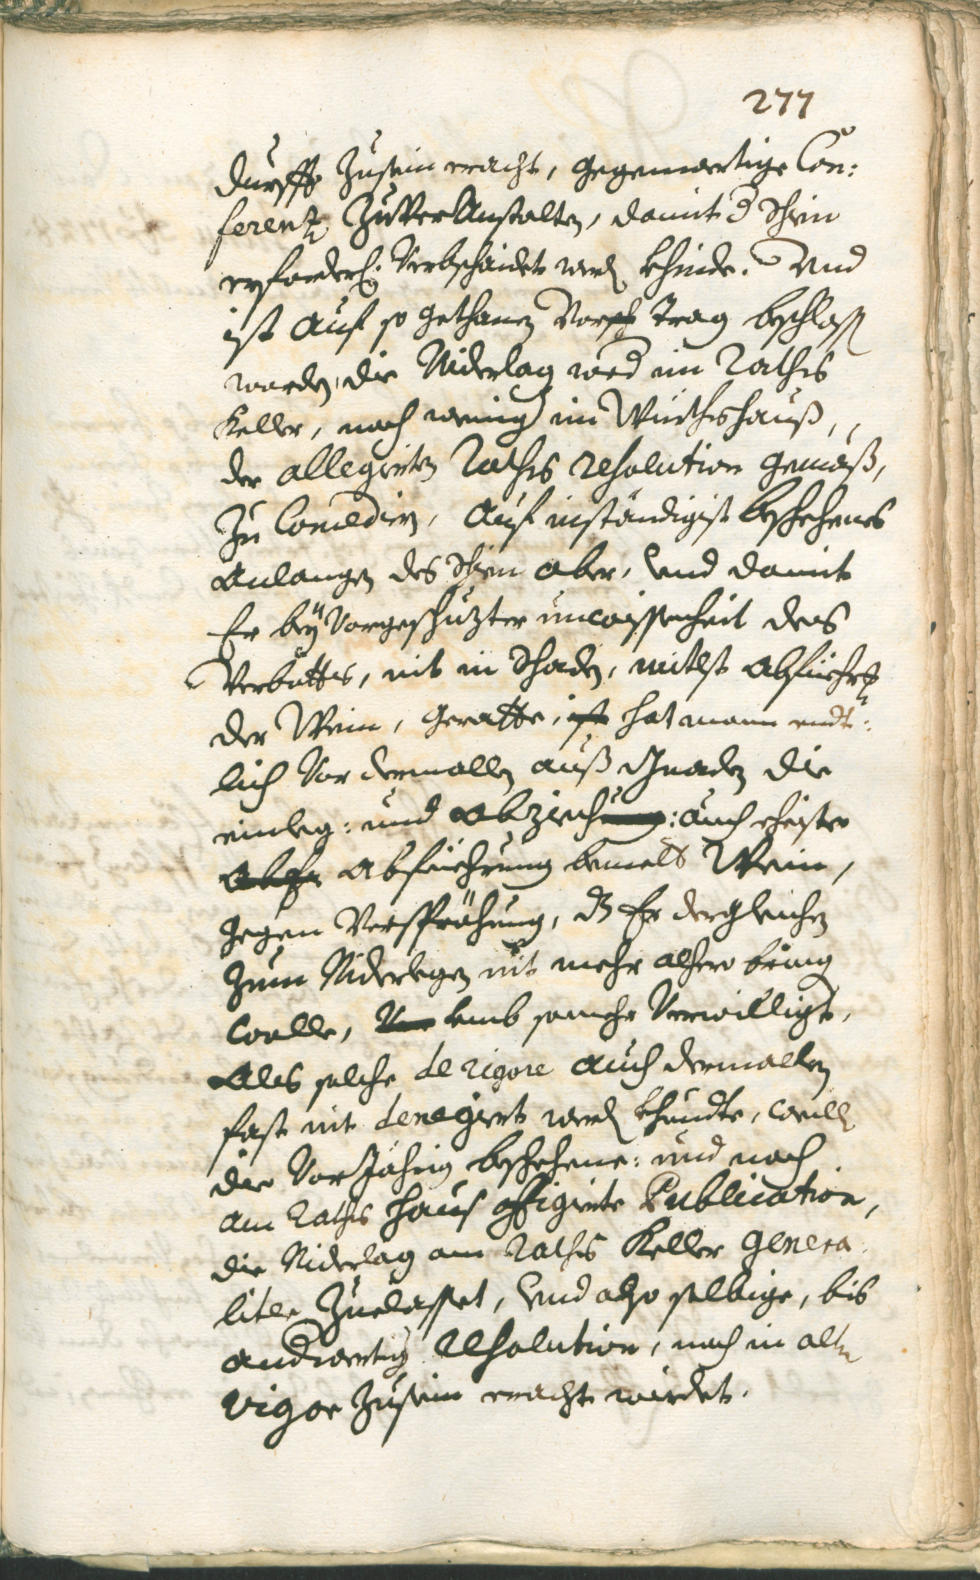 277
durffe zusein eracht, gegenwertige Con:
ferentz zuver Anstalten, damit d Thein
erforderl: Verbschaidet werd khinde. Und
ist auf so gethanen Vorsch Trag beschloss
worden, die Niderlag wed im Raths
Keller, noch wenig im Würthshauß,
der allegierten Raths resolution gemäß,
zu Concedirn, Auf instendigist beschehenes
Anlangen des Thein aber, und damit
Er bey Vorgeschuzter unwissenheit des
Verbotts, nit in schaden, mitlst abfuehr
der Wein, gerathe, ist hat mann endt:
lich Vor dermallen auß gnaden die
einleg: und abziech ung: auch ehiste
Abfe abfüehrung bemelt Wein,
gegen Versprechung, dz Er dergleichen
zum Niderlegen nit mehr alhero bring
wolle, Um umb somehr Verwilligt,
Als solche de rigore auch dermallen
fast nit denegiert werd khundte, weill
die Vor Jährig beschehene: und noch
am Raths Haus affigierte Publication,
die Niderlag am Raths Keller genera
liter zuelasset, und also selbige, bis
andwertig resolution, noch in alln
vigor zusein eracht wirdet.